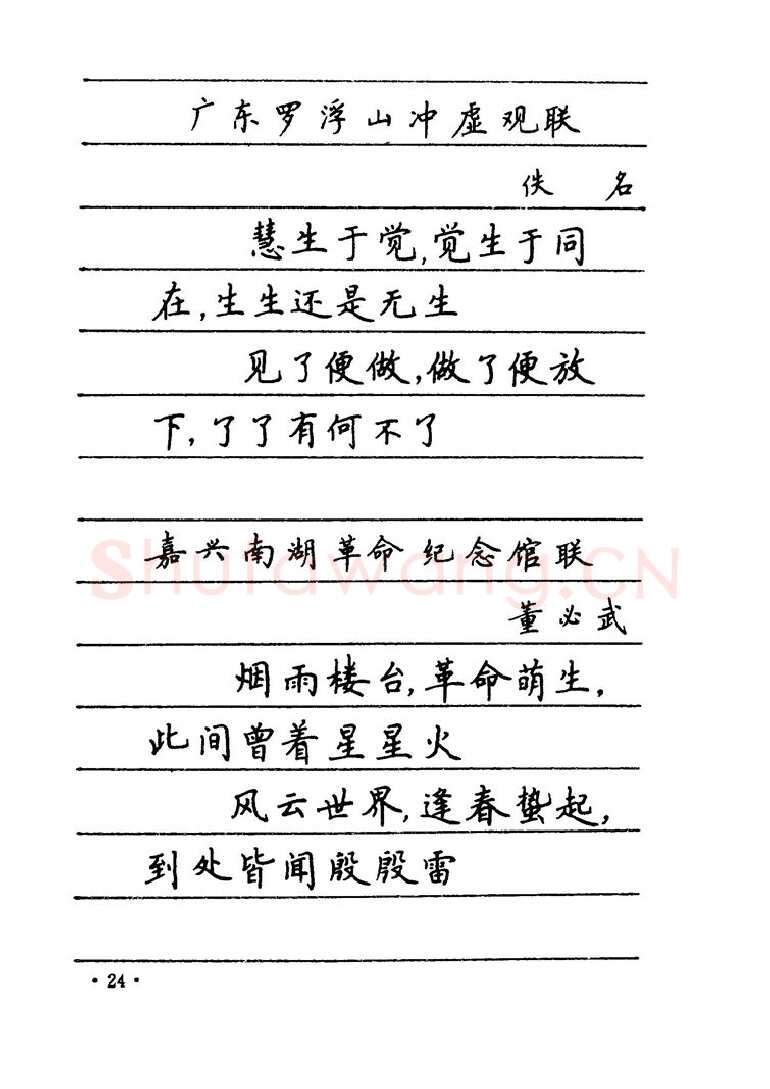 广东罗浮山冲虚观联
佚 名
慧生于觉,觉生于同
在,生生还是无生
见了便做,做了便放
下,了了有何不了
嘉兴南湖革命纪念馆联
董必武
烟雨楼台,革命萌生,
此间曾着星星火
风云世界,逢春蛰起,
到处皆闻殷殷雷
·24·
Shufawang.CN